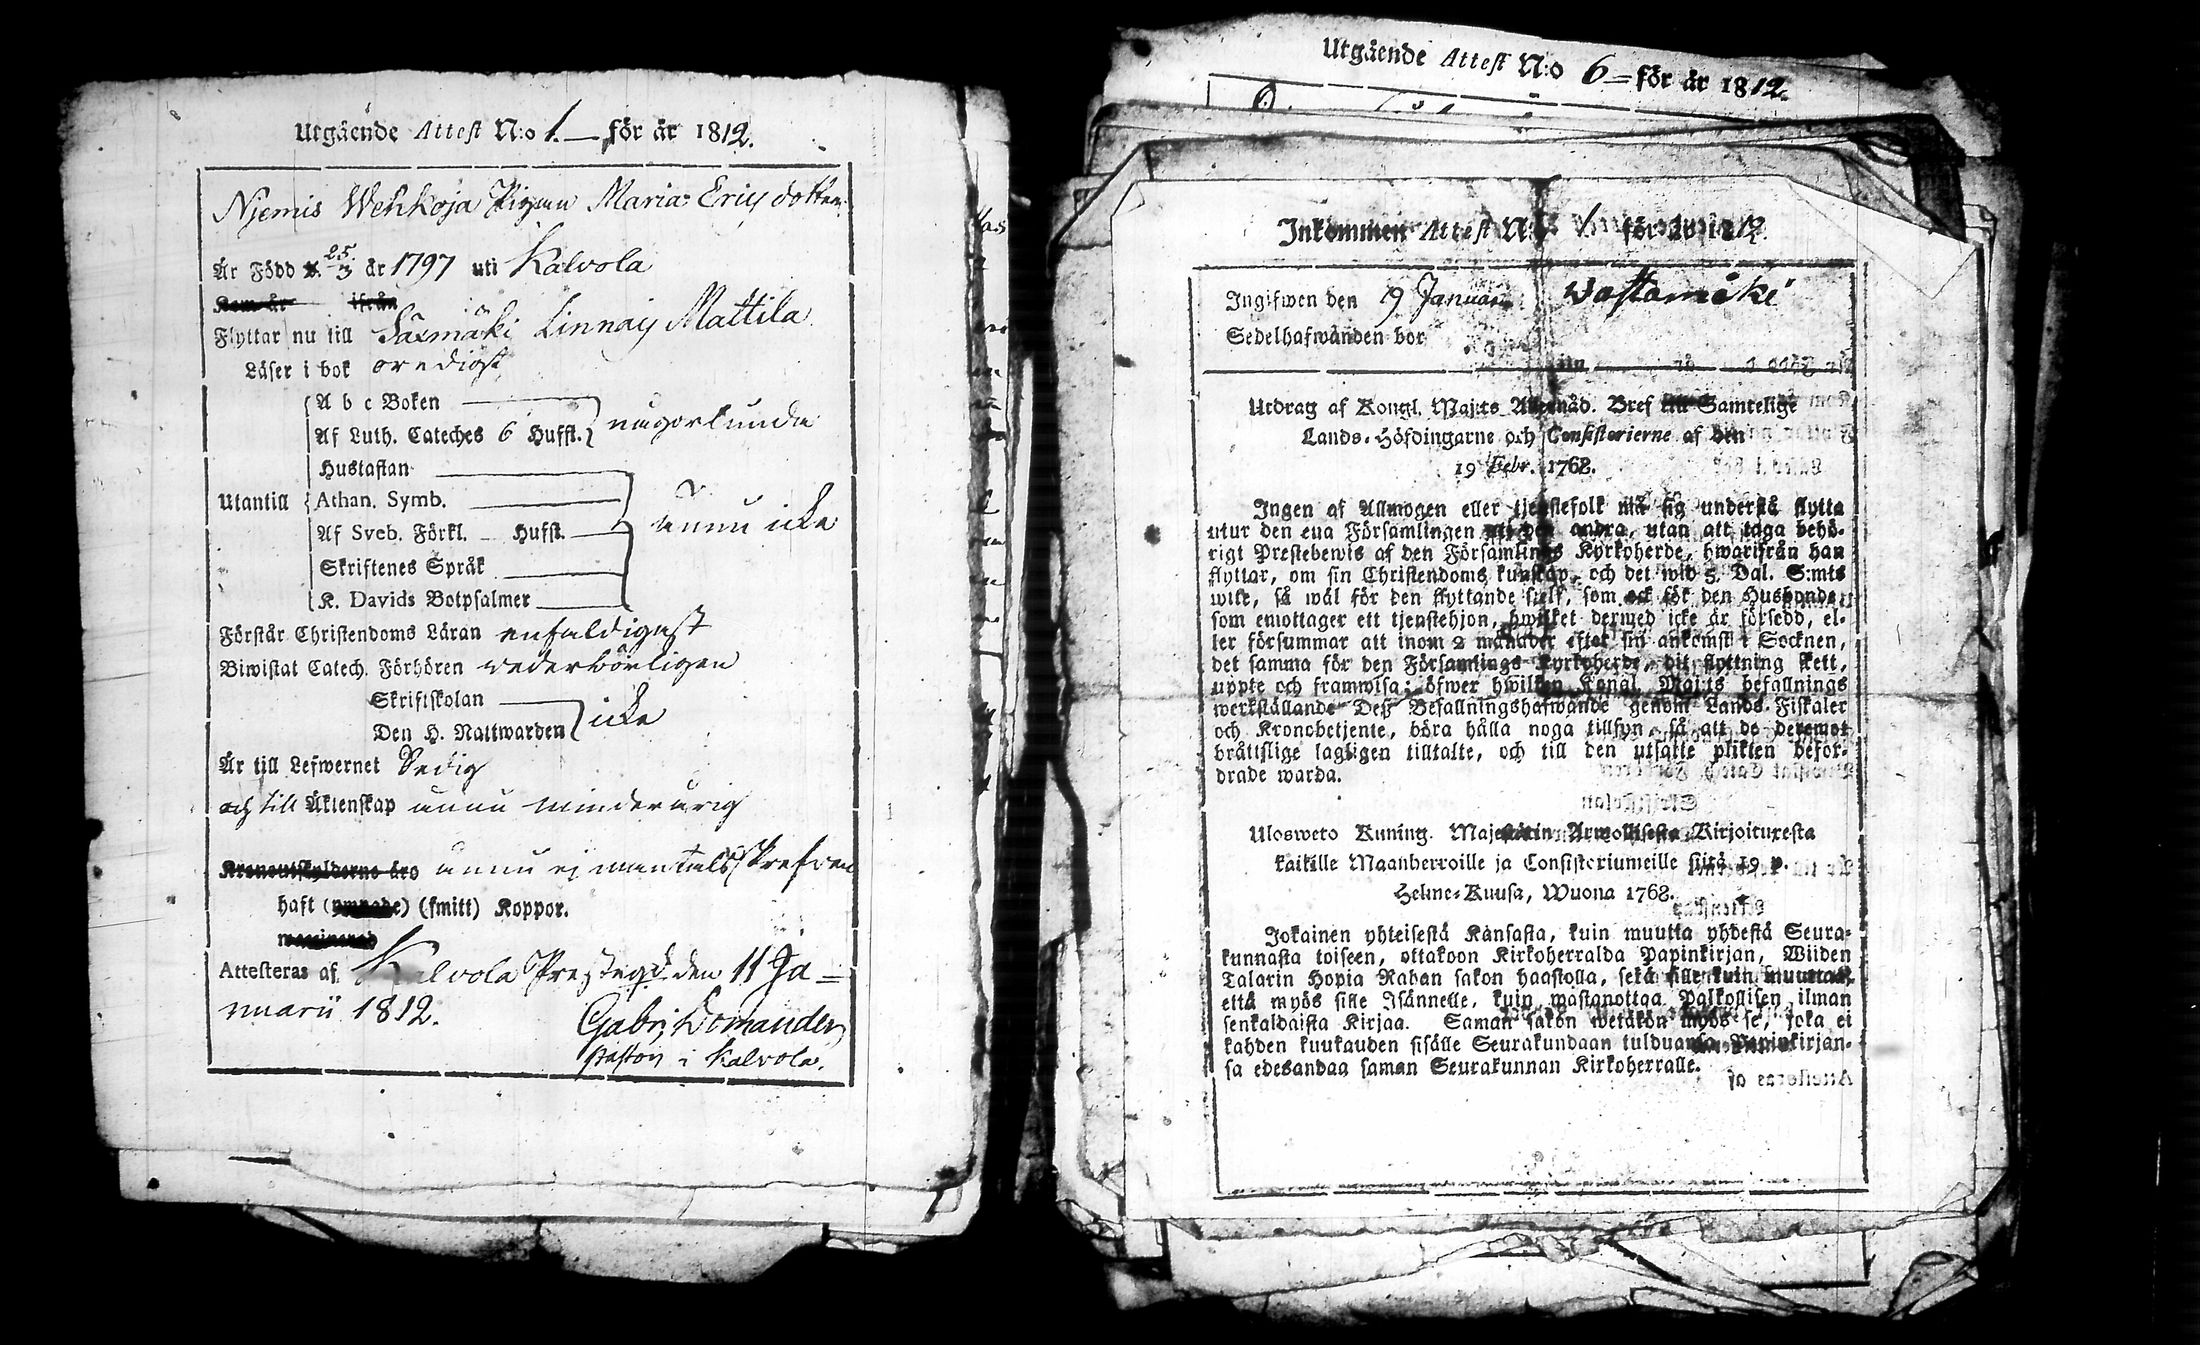 Utgående Attest N:o 1. för år 1812.
Njemis Wehkoja Pigan Maria Ericsdotter
Är Född d. 25/3 år 1797 uti Kalvola
Kom år ifrån
Flyttar nu till Säxmäki Linnais Mattila
Läser i bok oredigt
A b c Boken
Af Luth. Cateches 6 Huffst. någorlunda
Hustaflan
Utantill Athan. Symb.
Af Sveb. Förkl. Hufst. ännu icke
Skriftenes Språk
K. Davids Botpsalmer
Förstår Christendoms Läran enfaldigast
Biwistat Catech. Förhören vederbörligen
Skriftskolan
Den H. Nattwarden icke
Är till Lefwernet Sedig
och till Äktenskap ännu minderårig
Kronoutskylderne äro ännu ej mantalsskrefven
haft (ympade) (smitt) Koppor.
vaccinerad
Attesteras af Kalvola Prestegd den 11 Ja=
nuarii 1812.
Gabr. Domander
Pastor i Kalvola.
Utgående Attest N:o 6 för år 1812.
Inkommen Attest N:o 1 för år 1812.
Ingifwen den 19 Januarii
Sedelhafwanden bor
Utdrag af Kongl. Maj:ts Allernåd. Bref till Samtelige
Lands-Höfdingarne och Consistorierne af den
19 Febr. 1768.
Ingen af Allmogen eller tjenstefolk må sig understå flytta
utur den ena Församlingen uti den andra, utan att taga behö-
rigt Prestebewis af den Församlings Kyrkoherde, hwarifrån han
flyttar, om sin Christendoms kunskap, och det wid 5 Dal. S:mts
wite, så wäl för den flyttande sjelf, som ock för den Husbonde,
som emottager ett tjenstehjon, hwilket dermed icke är försedd, el-
ler försummar att inom 2 månader efter sin ankomst i Socknen,
det samma för den Församlings Kyrkoherde, dit flyttning skett,
uppte och framwisa; öfwer hwilken Kongl. Maj:ts befallnings
werkställande Deß Befallningshafwande genom Lands-Fiskaler
och Kronobetjente, böra hålla noga tillsyn, så att de deremot
bråttslige lagligen tilltalte, och till den utsatte plikten befor-
drade warda.
Ulosweto Kuning. Majestätin Armollisesta Kirjoituxesta
kaikille Maanherroille ja Consistoriumeille siitä 19 p.
Helme-Kuusa, Wuona 1768.
Jokainen yhteisestä Kansasta, kuin muutta yhdestä Seura-
kunnasta toiseen, ottakoon Kirkoherralda Papinkirjan, Wiiden
Talarin Hopia Rahan sakon haastolla, sekä sille kuin muuttaa,
että myös sille Isännelle, kuin wastanottaa Palkollisen ilman
senkaldaista Kirjaa. Saman sakon wetäkön myös se, joka ei
kahden kuukauden sisälle Seurakundaan tulduansa Papinkirjan-
sa edesandaa saman Seurakunnan Kirkoherralle.